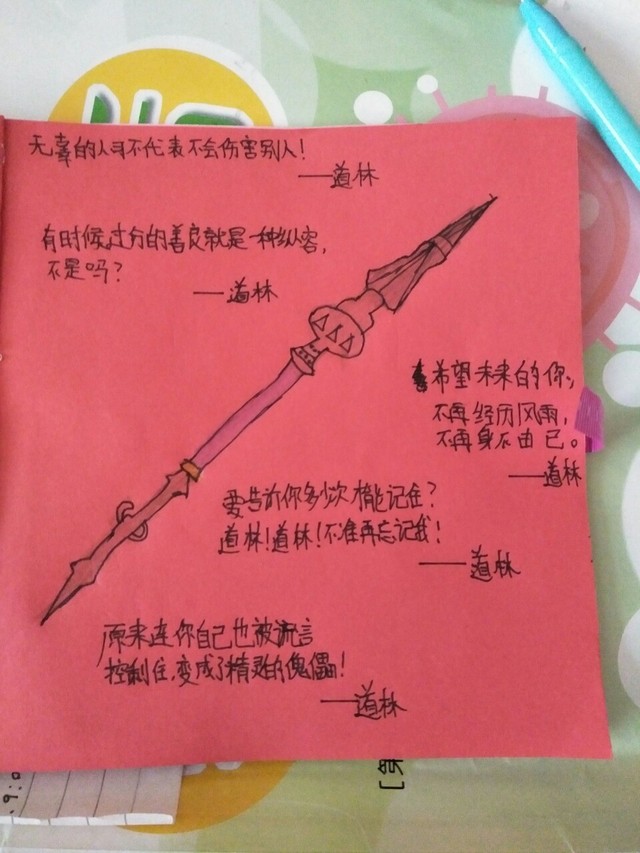 无辜的人可不代表不会伤害别人!
——道林
有时候,过分的善良就是一种纵容,
不是吗?
——道林
希望未来的你,
不再经历风雨,
不再身不由已。
——道林
要告诉你多少次才能记住?
道林!道林!不准再忘记我!
——道林
原来连你自己也被流言
控制住,变成了精灵的傀儡!
——道林